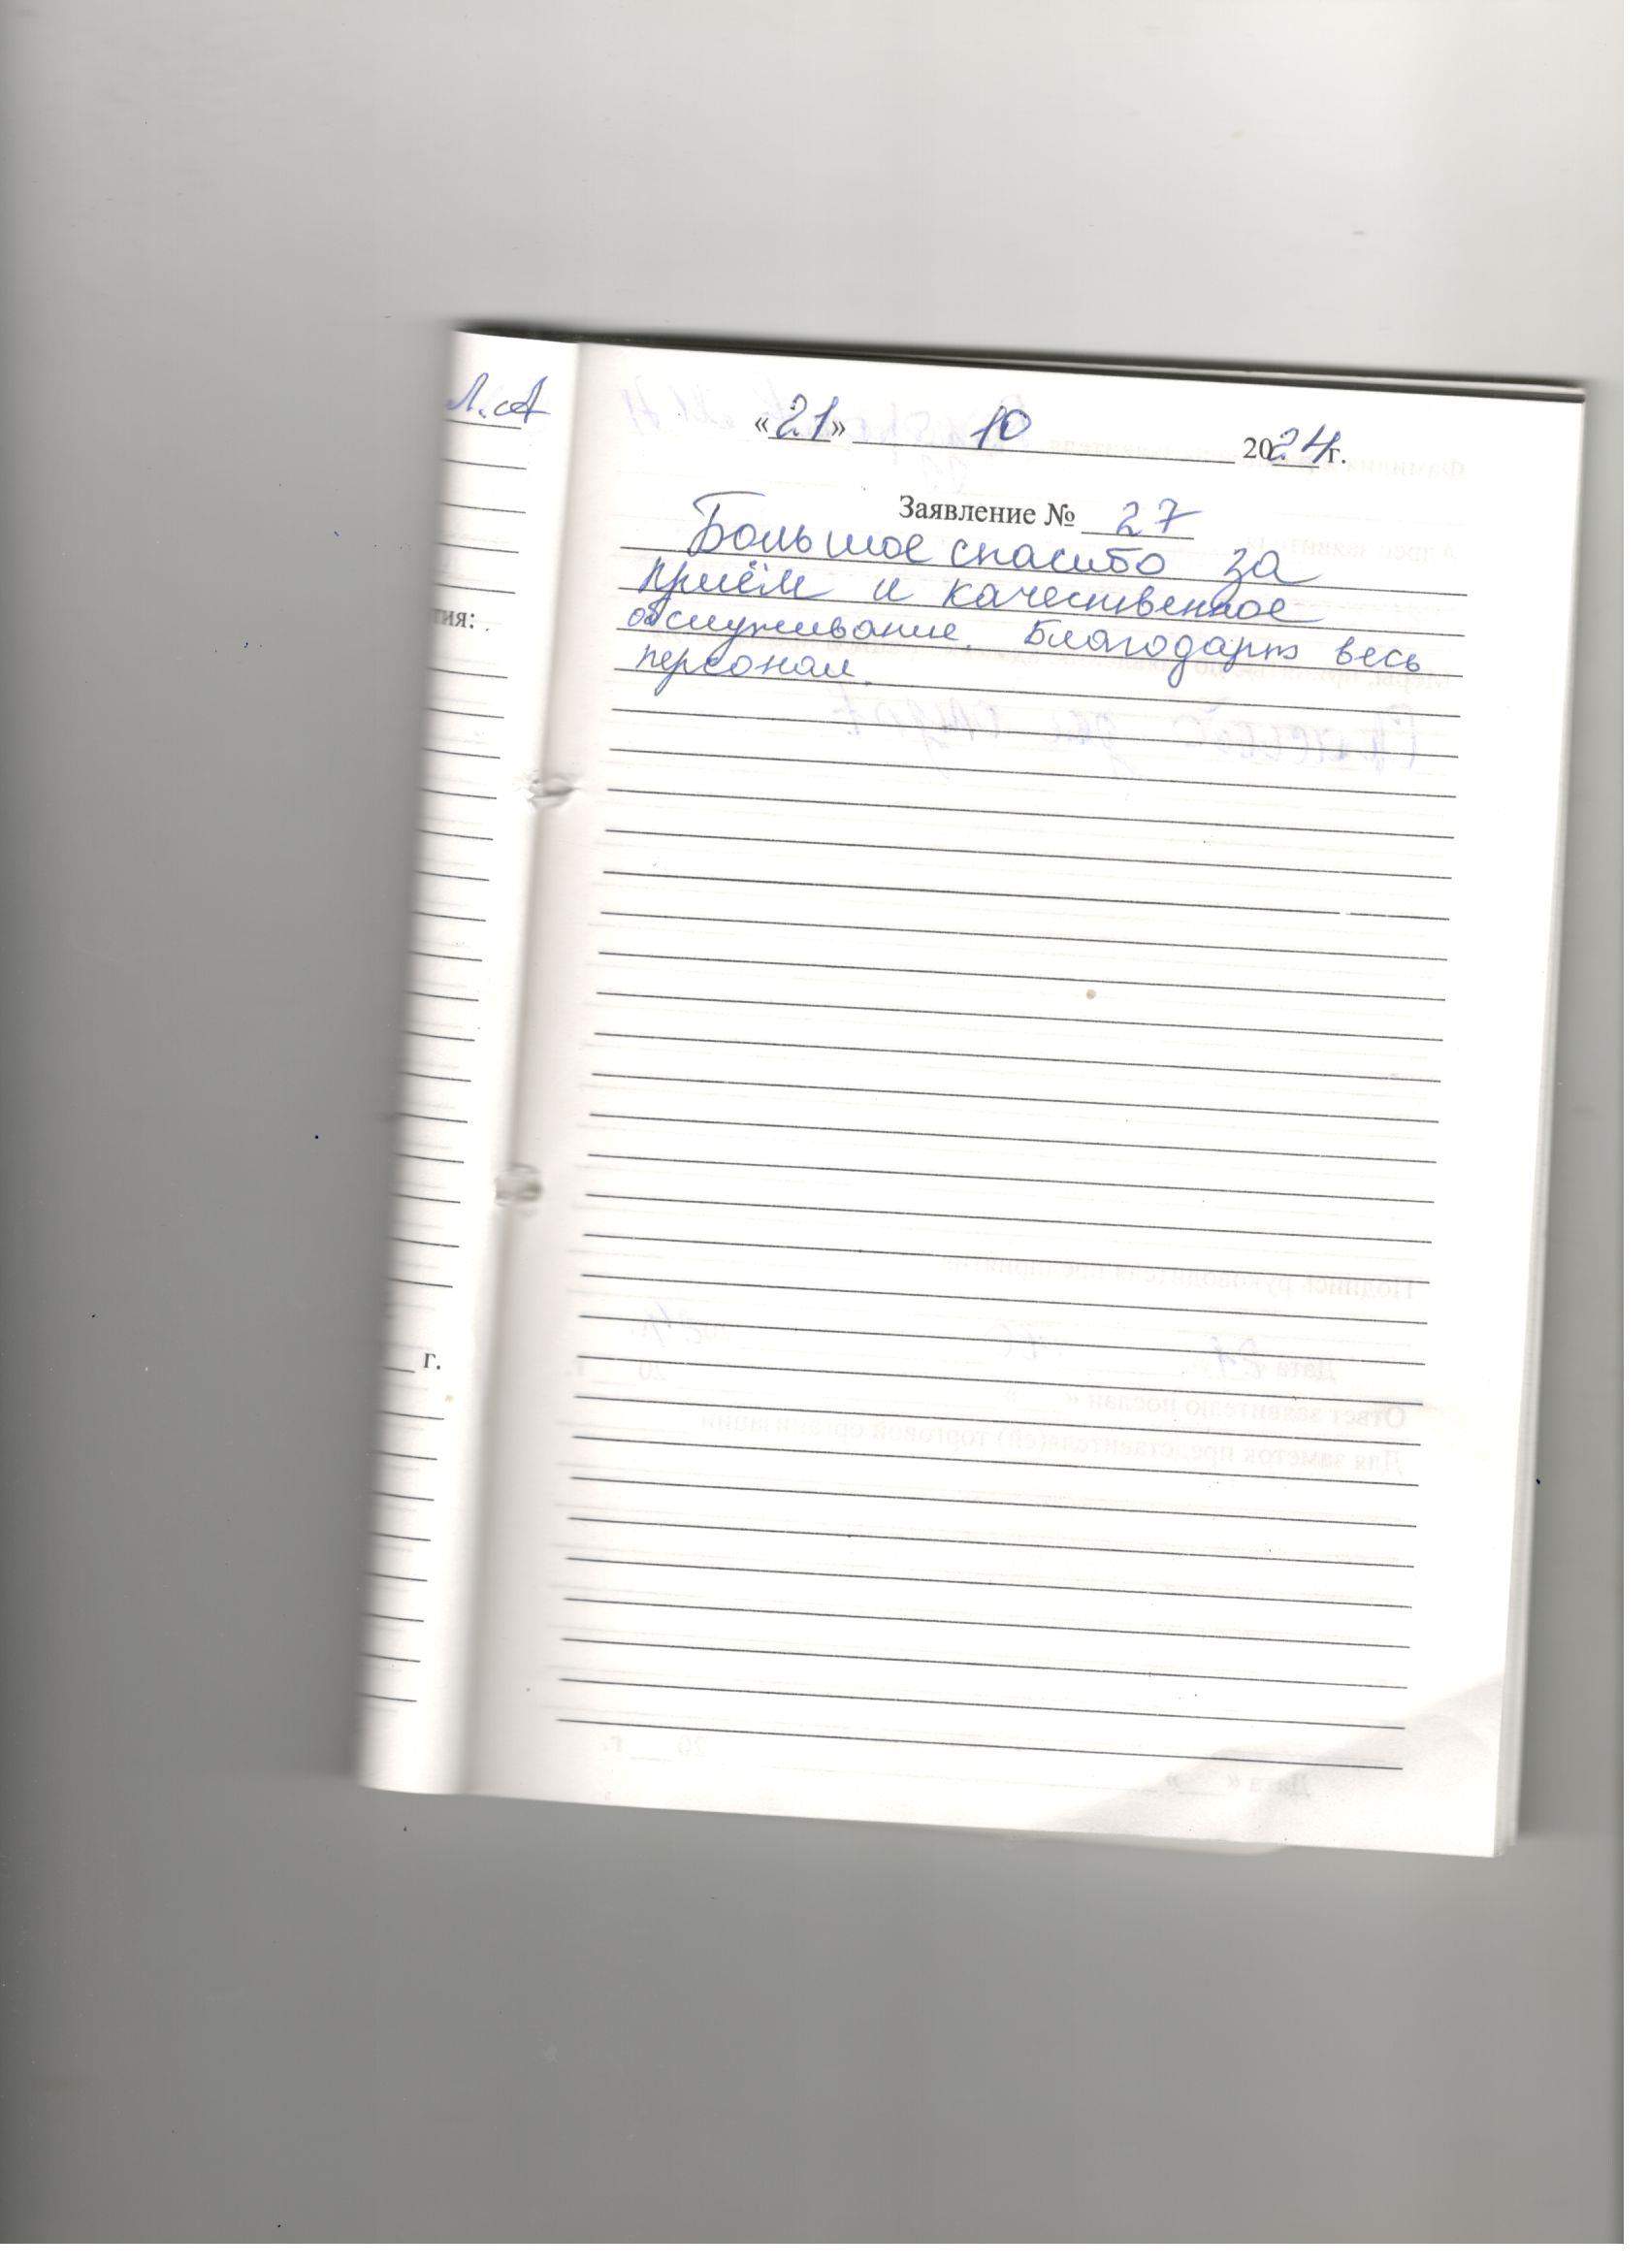 Л.А
тия:
г.
«21» 10 2024г.
Заявление № 27
Большое спасибо за
приём и качественное
обслуживание. Благодарю весь
персонал.